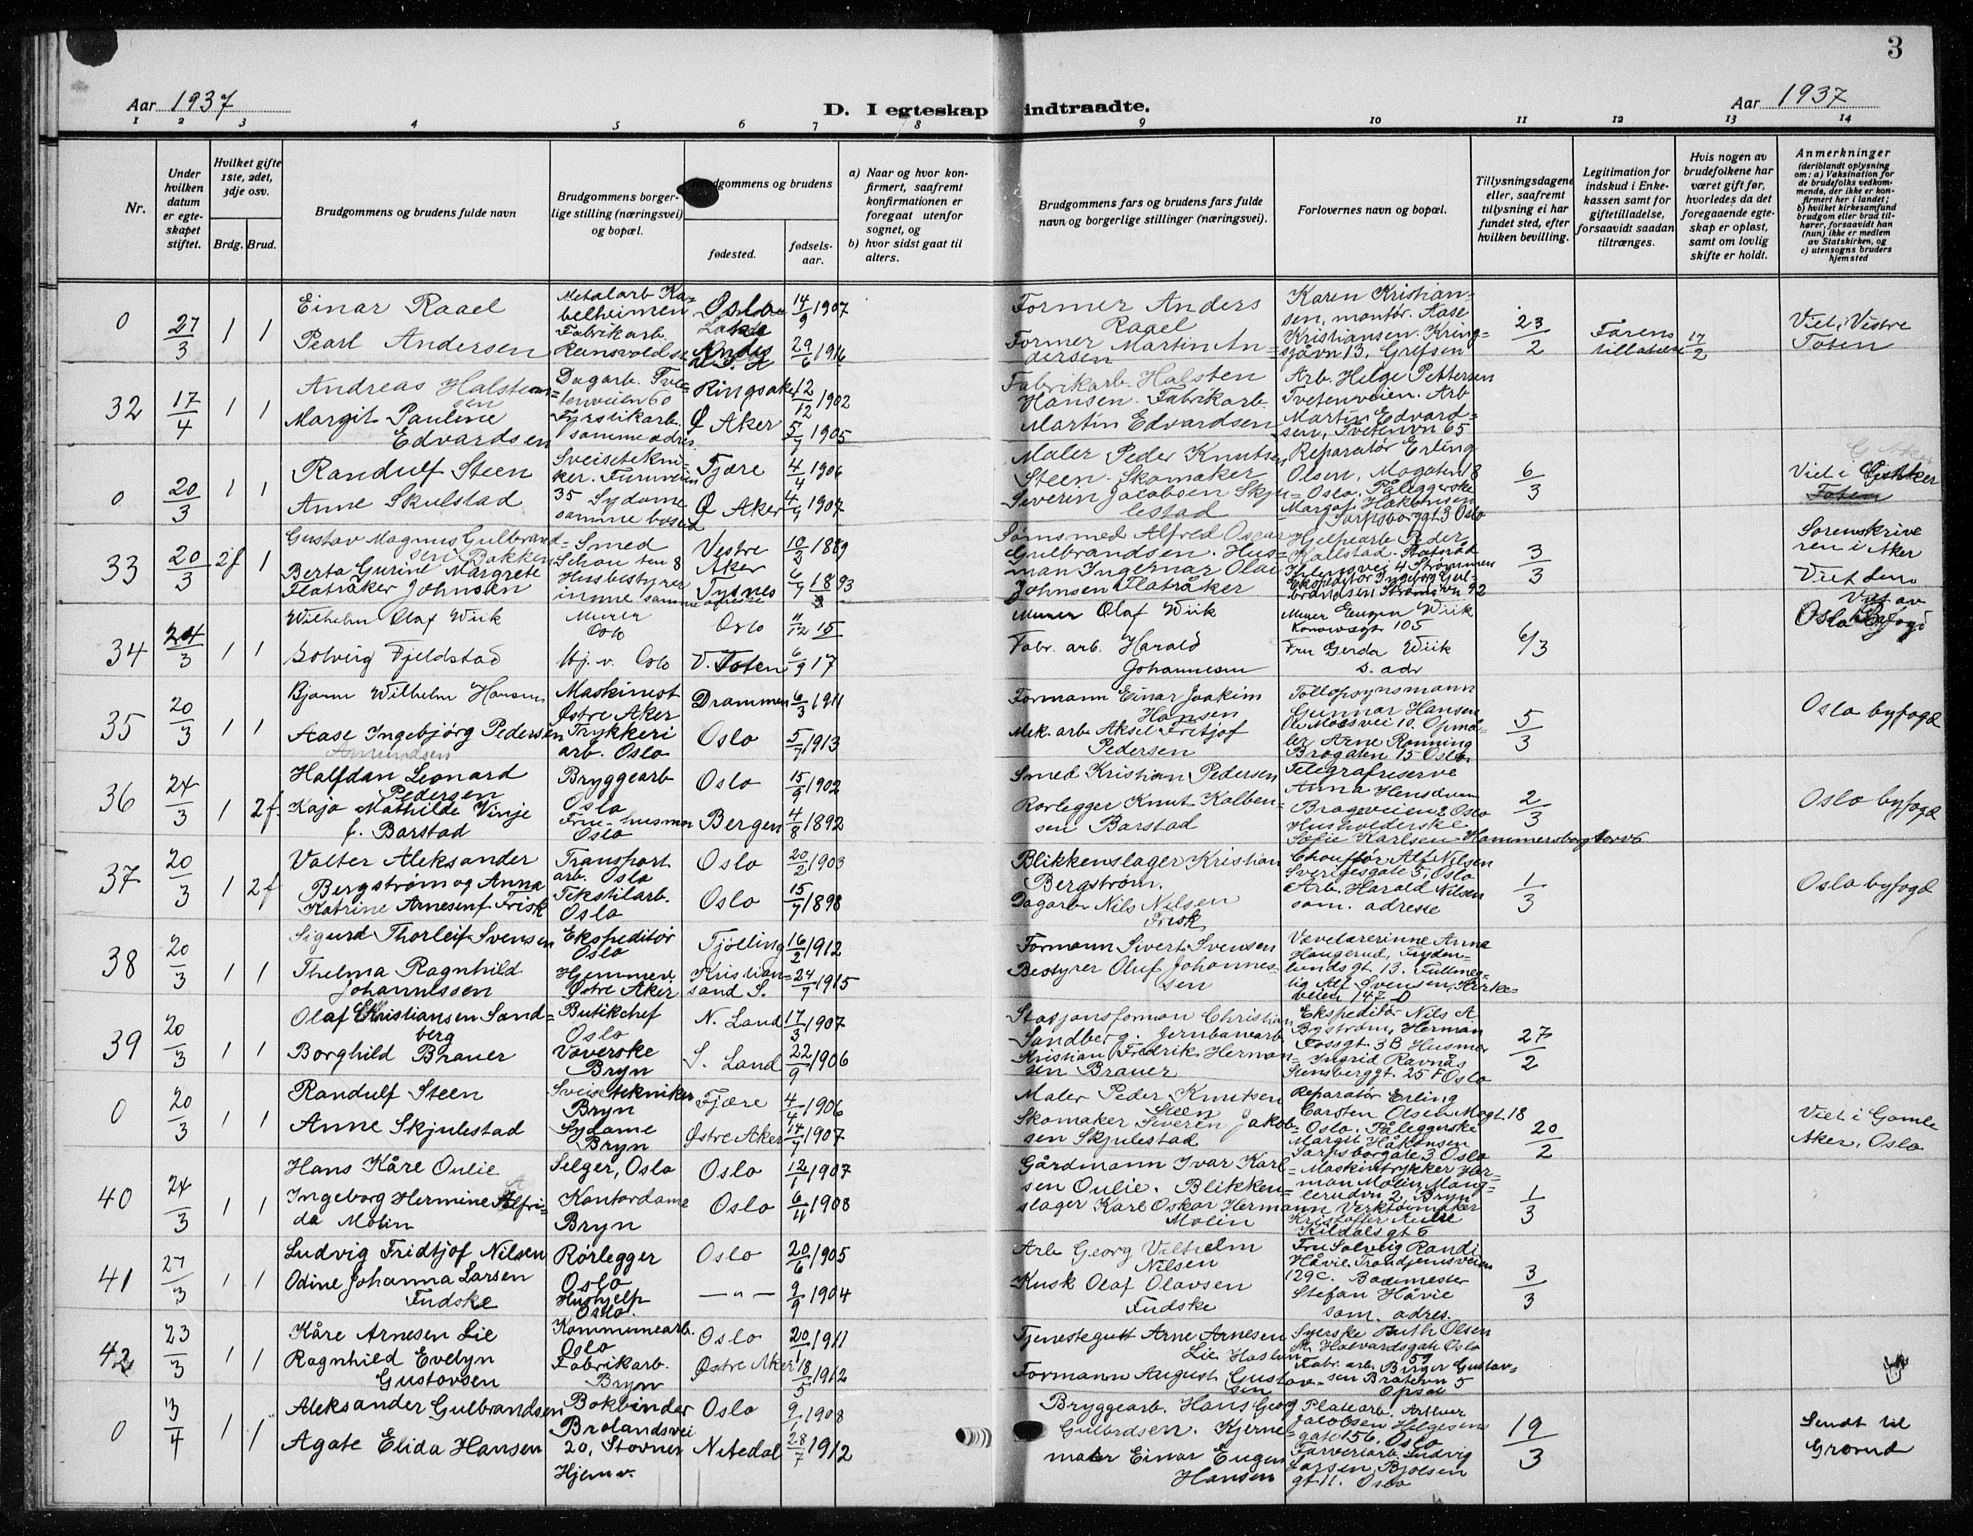 3
Aar 1937
D. I egteskap indtraadte.
Aar 1937
1 2 3 4 5 6 7 8 9 10 11 12 13 14
Nr.
Under hvilken datum er egteskapet stiftet.
Hvilket gifte 1ste, 2det, 3dje osv.
Brdg. Brud.
Brudgommens og brudens fulde navn
Brudgommens borgerlige stilling (næringsvei) og bopæl.
Brudgommens og brudens
fødested.
fødselsaar.
a) Naar og hvor konfirmert, saafremt konfirmationen er foregaat utenfor sognet, og
b) hvor sidst gaat til alters.
Brudgommens fars og brudens fars fulde navn og borgerlige stillinger (næringsvei).
Forlovernes navn og bopæl.
Tillysningsdagene eller, saafremt tillysning ei har fundet sted, efter hvilken bevilling.
Legitimation for indskud i Enkekassen samt for giftetilladelse, forsaavidt saadan tiltrænges.
Hvis nogen av brudefolkene har været gift før, hvorledes da det foregaaende egteskap er opløst, samt om lovlig skifte er holdt.
Anmerkninger
(deriblandt oplysning om: a) Vaksination for de brudefolks vedkommende, der ikke er konfirmert her i landet; b) hvilket kirkesamfund brudgom eller brud tilhører, forsaavidt han (hun) ikke er medlem av Statskirken, og c) utensogns bruders hjemsted
0 27/3 1 1
Einar Raael
Pearl Andersen
Metalarb Kabelheimen
Fabrikarb.
Oslo 14/9 1907
29/6 1916
Former Anders Raael
Former Martin Andersen
Karen Kristiansen, montør. Aase
Kristiansen. Kringsjåvn 13. Grefsen
23/2
Farens tillatelse 17/2
Viet i Vestre Toten
32 17/4 1 1
Andreas Halstensen
Margit Pauline Edvardsen
Dagarb. Tvetenveien 60
Fyrstikarb. samme adres
Ringsaker 12/12 1902
Ø Aker 5/7 1905
Fabrikarb. Halsten Hansen. Fabrikarb.
Martin Edvardsen
Arb. Helge Pettersen
Tvetenveien. Arb
Martin Edvardsen, Tvetenvn 65
0 20/3 1 1
Randulf Steen
Anne Skulstad
Sveisetekniker. Furuveien
35 Sydame samme bosted
Fjære 4/4 1906
Ø Aker 1907
Maler Peder Knutsen
Steen. Skomaker
Severin Jacobsen Skjulestad
Reparatør Erling
Olsen, Mogaten 18
Oslo. Påleggerske
Margot Hakonsen
Sarpsborggt 3 Oslo
6/3
Viet i G. Aker
Toten
33 20/3 2f 1
Gustav Magnus Gulbrandsen Bakken
Berta Gurine Margrete
Flatråker Johnsen
Smed
Schou ten 8
Husbestyrer
samme adresse
Vestre Aker 10/3 1889
Tysnes 6/7 1893
Sømsmed Alfred Oscar
Gulbrandsen. Husman Ingemar Olai
Johnsen Flatråker
Hjelpearb. Peder
Karlstad.
Ekspeditør Ingeborg Gulbrandsen Strømsvn 92
3/3
Sorenskriveren i Aker
34 24/3 1 1
Wilhelm Olaf Wiik
Solveig Fjeldstad
Murer Oslo
Hj. v. Oslo
Oslo 11/12 15
V. Toten 6/9 17
Murer Olaf Wiik
Fabr. arb. Harald Johannesen
Murer Eugen Wiik
Konowsgt 105
Fru Gerda Wiik
s. adr
6/3
Viet av
Oslo Byfogd
35 20/3 1 1
Bjarne Wilhelm Hansen
Aase Ingebjørg Pedersen
Amundsen
Maskinest
Østre Aker
Trykkeri arb. Oslo
Drammen 6/3 1911
Oslo 5/7 1913
Formann Einar Joakim Hansen
Mek. arb. Aksel Fritjof Pedersen
Tollopsynsmann
Gunnar Hansen
ler Arne Rønning
Brogaten 15 Oslo
5/3
Oslo byfogd
36 24/3 1 2f.
Halfdan Leonard Pedersen
Kaja Mathilde Vinje
f. Barstad
Bryggearb
Oslo
Frue-husmor
Oslo
Oslo 15/9 1902
Bergen 4/8 1892
Smed Kristian Pedersen
Rørlegger Knut Kolbensen Barstad
Telegrafreserve
Anna Hensdven
Brageveien 2 Oslo
Husholderske
Sofie Karlsen Hammersborg torv 6
2/3
Oslo byfogd
37 20/3 1 2f
Valter Aleksander
Bergstrøm og Anna
Katrine Arnesen f. Frisk
Transport arb. Oslo
Tekstilarb. Oslo
Oslo 20/2 1903
Oslo 15/7 1898
Blikkenslager Kristian
Bergstrøm.
Dagarb Nils Nilsen Frisk
Chauffør Alf Nilsen
Sverigesgate 5, Oslo
Arb. Harald Nilsen
som. adreste
1/3
Oslo byfogd
38 20/3 1 1
Sigurd Thorleif Svensen
Thelma Ragnhild Johannessen
Ekspeditør
Oslo
Hjemmev
Østre Aker
Tjølling 16/2 1912
Kristiansand S. 24/7 1915
Formann Sivert Svensen
Bestyrer Oluf Johannessen
Vevelærerinne Anna
Haugerud, Frydenlundsgt. 13. Fullmektig Alf Svensen, Kirkeveien 147 D
39 20/3 1 1
Olaf Kristiansen Sandberg
Borghild Brauer
Butikchef
Oslo
Væverske
Bryn
N. Land 17/3 1907
S. Land 22/9 1906
Stasjonsforman Christian
Sandberg. Jernbanearb
Kristian Fredrik Hermansen Brauer
Ekspeditør Nils A.
Byström, Herman
Fossgt. 3B Husmor
Ingrid Ravnås
Stensberggt. 25 F Oslo
27/2
0 20/3 1 1
Randulf Steen
Anne Skjulestad
Sveisetekniker
Bryn
Sydame
Bryn
Fjære 4/4 1906
Østre Aker 14/7 1907
Maler Peder Knutsen Steen
Skomaker Severin Jakobsen Skjulestad
Reparatør Erling
Carsten Olsen Mogt. 18
Oslo. Påleggerske
Margit Håkonsen
Sarpsborgate 3 Oslo
20/2
Viet i Gamle
Aker, Oslo
40 24/3 1 1
Hans Kåre Oulie
Ingeborg Hermine Alfrida Molin
Selger, Oslo
Kontordame
Bryn
Oslo 12/1 1907
Oslo 6/11 1908
Gårdmann Ivar Karlsen Oulie. Blikkenslager Karl Oskar Hermann Molin
Maskintrykker Herman Molin, Manglerudvn 2, Bryn
Verktøimaker
Kristoffer Aulie
Kildals gt 6
1/3
41 27/3 1 1
Ludvig Fridtjof Nilsen
Odine Johanna Larsen
Fudske
Rørlegger
Oslo
Hushjelp
Oslo.
Oslo 20/6 1905
— " — 9/9 1904
Arb Georg Vilhelm Nilsen
Kusk Olaf Olavsen
Fudske
Fru Solveig Randi
Håvie. Trondjemsveien
129c. Bademester
Stefan Håvie
som. adres.
3/3
42 23/3 1 1
Kåre Arnesen Lie
Ragnhild Evelyn
Gustavsen
Kommunearb.
Oslo
Fabrikarb.
Bryn
Oslo 20/1 1911
Østre Aker 18/5 1912
Tjenestegutt Arne Arnesen
Lie
Formann August Gustavsen
Syerske Ruth Olsen
St. Halvardsgate Oslo 59
Fabr. arb. Birger Gustavsen Bråtevn 5
Opsal
0 3/4 1 1
Aleksander Gulbrandsen
Agate Elida Hansen
Bokbinder
Brolandsvei
20, Stovner
Hjemv.
Oslo 9/1 1908
Nitedal 28/7 1912
Bryggearb. Hans Georg
Gulbrdsen. Kjernemaker Einar Eugen
Hansen
Platearb. Arthur
Jacobsen Helgesens
gate 156. Oslo
Farveriarb. Ludvig
Larsen, Bjølsen
gt 11. Oslo
19/3
Sendt til
Grorud